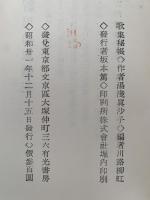 歌集秘帳◇作者湯淺眞沙子◇編者川路柳虹
◇發行者坂本篤◇印刷所株式會社堀内印刷
◇發兌東京都文京區大塚仲町三六有光書房
◇昭和卅一年十二月十五日發行◇價參百圓